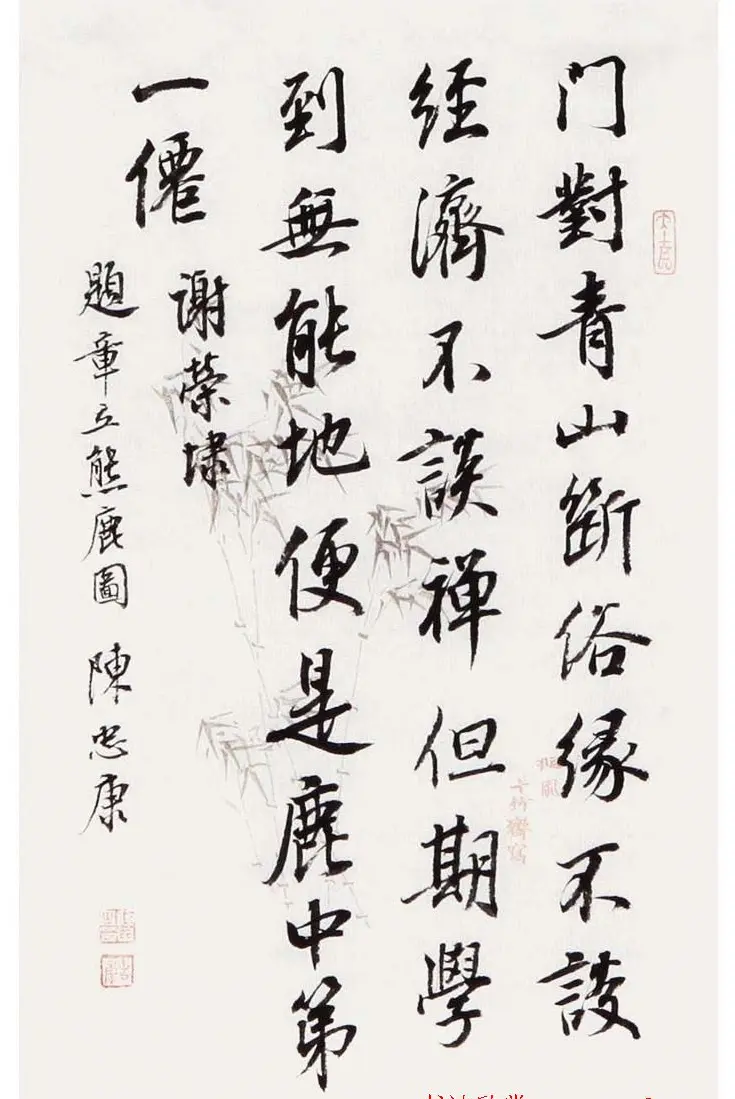 門對青山斷俗緣不談
經濟不談禪但期學
到無能地便是鹿中第
一僊
謝榮埭
題章立熊鹿圖 陳忠康